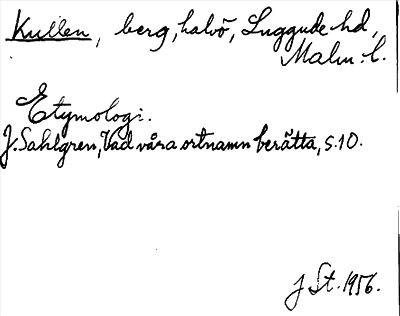 Kullen, berg, halvö, Luggude hd,
Malm. l.
Etymologi.
J. Sahlgren, Vad våra ortnamn berätta, s. 10.
J St. 1956.